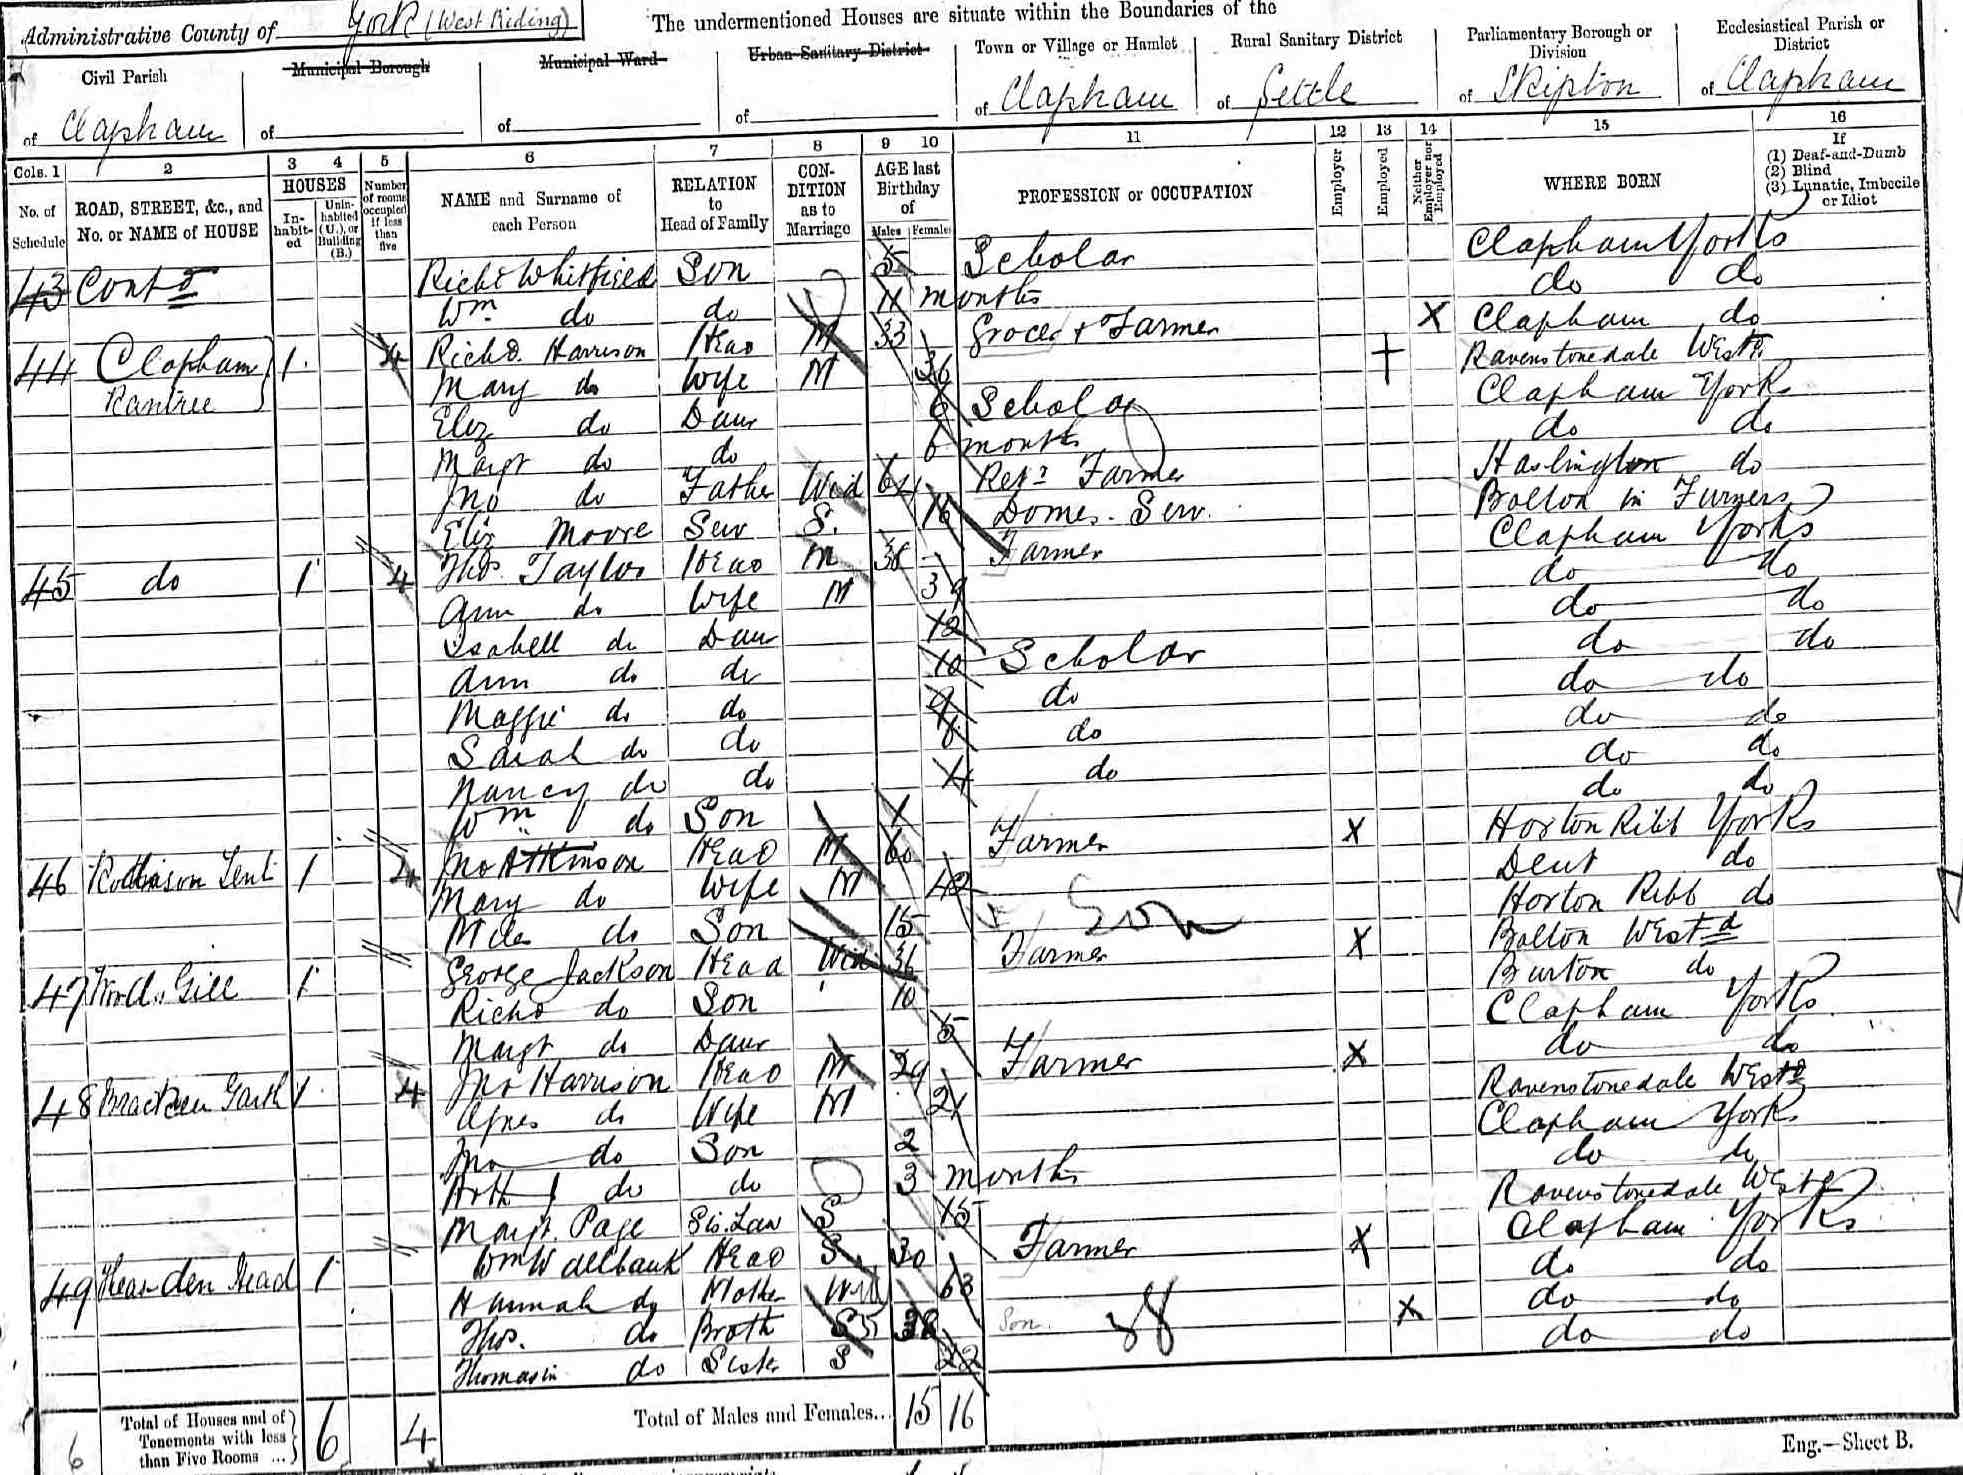 Administrative County of York (West Riding)
The undermentioned Houses are situate within the Boundaries of the
Civil Parish of Clapham
Municipal Borough of
Municipal Ward of
Urban Sanitary District of
Town or Village or Hamlet of Clapham
Rural Sanitary District of Settle
Parliamentary Borough or Division of Skipton
Ecclesiastical Parish or District of Clapham
Cols. 1 2 3 4 5 6 7 8 9 10 11 12 13 14 15 16
No. of Schedule
ROAD, STREET, &c., and No. or NAME of HOUSE
HOUSES
In-habit-ed
Unin-habited (U.), or Building (B.)
Number of rooms occupied if less than five
NAME and Surname of each Person
RELATION to Head of Family
CON-DITION as to Marriage
AGE last Birthday of
Males Females
PROFESSION or OCCUPATION
Employer
Employed
Neither Employer nor Employed
WHERE BORN
If (1) Deaf-and-Dumb (2) Blind (3) Lunatic, Imbecile or Idiot
43 Contd Richd Whitfield Son 5 Scholar Clapham Yorks
Wm do do 11 months do do
44 Clapham 1 4 Richd. Harrison Head M 33 Grocer & Farmer X Clapham do
Mary do Wife M 36 Ravenstonedale Westd
Eliz do Daur 6 Scholar Clapham Yorks
Margt do do 6 months do do
Jno do Father Wid 64 Retd Farmer do
Eliz Moore Serv S. 16 Domes. Serv. Bolton in Furness
45 do 1 4 Thos. Taylor Head M 38 Farmer Clapham Yorks
Ann do Wife M 39 do do
Isabell do Daur 12 do do
Ann do do 10 Scholar do do
Maggie do do 9 do do do
Sarah do do 8 do do do
Nancy do do 4 do do do
Wm do Son 1 do do
46 1 4 Jno Atkinson Head M 60 Farmer X Horton Ribb Yorks
Mary do Wife M 42 Dent do
Miles do Son 15 Son Horton Ribb do
47 Gill 1 George Jackson Head Wid 36 Farmer X Bolton Westd
Richd do Son 10 Burton do
Margt do Daur 5 Clapham Yorks
48 Bracken Garth 1 4 Jno Harrison Head M 29 Farmer X do do
Agnes do Wife M Ravenstonedale Westd
Jno do Son 2 Clapham Yorks
do do 3 months do do
Margt. Page Sis. Law S 15 Ravenstonedale Westd
49 Head 1 Wm Wallbank Head S 30 Farmer X Clapham Yorks
Hannah do Mother Wid 63 do do
Thos. do Broth S 28 Son X do do
Thomasin do Sister S 22 do do
6 Total of Houses and of Tenements with less than Five Rooms ... 6 4
Total of Males and Females... 15 16
Eng.—Sheet B.